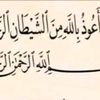 أَعُوذُ بِاللَّهِ مِنَ الشَّيْطَانِ الرَّ
ـمِ اللَّهِ الرَّحْمَٰنِ الرَّ